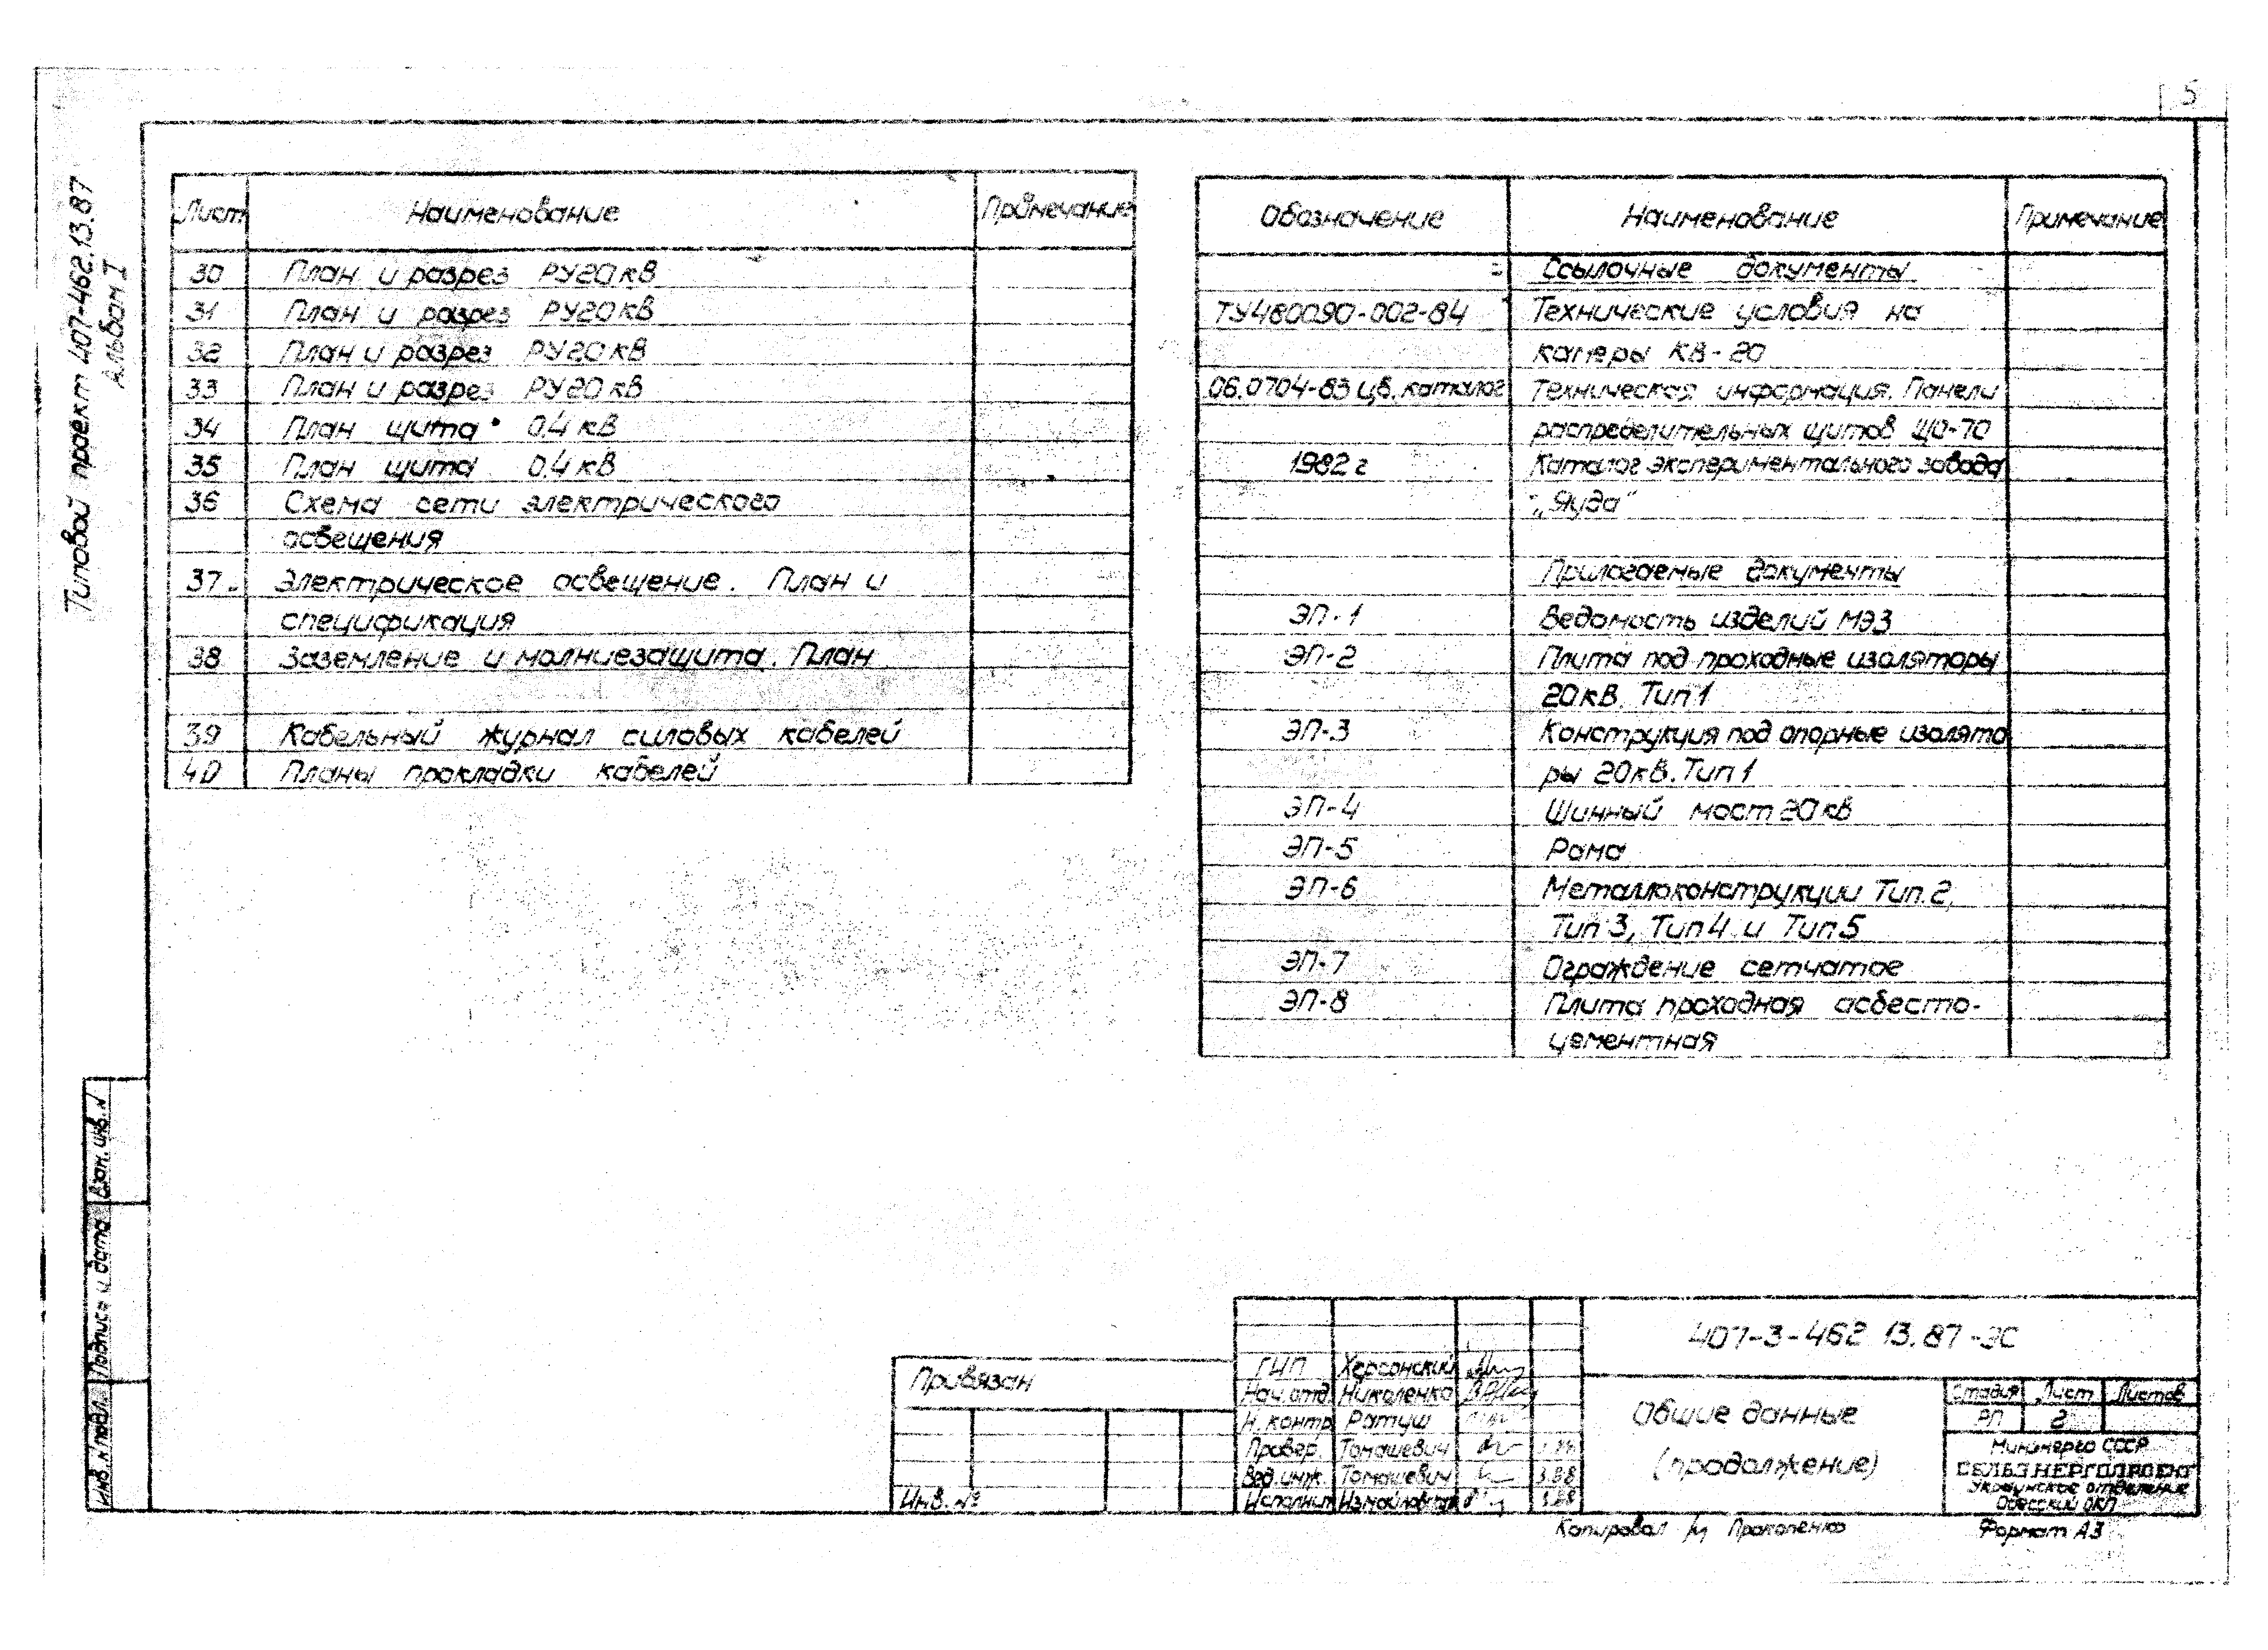 5
Типовой проект 407-462.13.87
Альбом I
Лист Наименование Примечание
30 План и разрез РУ20кВ
31 План и разрез РУ20кВ
32 План и разрез РУ20кВ
33 План и разрез РУ20кВ
34 План щита 0.4кВ
35 План щита 0.4кВ
36 Схема сети электрического
освещения
37 Электрическое освещение. План и
спецификация
38 Заземление и молниезащита. План
39 Кабельный журнал силовых кабелей
40 Планы прокладки кабелей
Обозначение Наименование Примечание
Ссылочные документы
ТУ480090-002-84 Технические условия на
камеры КВ-20
06.0704-83 цв. каталог Техническая информация. Панели
распределительных щитов ЩО-70
1982 г Каталог экспериментального завода
Прилагаемые документы
ЭП-1 Ведомость изделий МЭЗ
ЭП-2 Плита под проходные изоляторы
20кВ. Тип 1
ЭП-3 Конструкция под опорные изолято
ры 20кВ. Тип 1
ЭП-4 Шинный мост 20кВ
ЭП-5 Рама
ЭП-6 Металлоконструкции Тип.2,
Тип 3, Тип 4 и Тип 5
ЭП-7 Ограждение сетчатое
ЭП-8 Плита проходная асбесто-
цементная
Взам. инв. N
Подпись и дата
Инв. N подл.
Привязан
Инв. №
407-3-462 13.87-ЭС
ГИП Херсонский
Нач. отд. Николенко
Н. контр. Ратуш
Провер. Томашевич
Вед. инж. Томашевич 3.88
Исполнит 3.88
Общие данные
(продолжение)
Стадия Лист Листов
РП 2
Минэнерго СССР
СЕЛЬЭНЕРГОПРОЕКТ
Украинское отделение
Одесский ОКП
Копировал Прокопенко
Формат А3